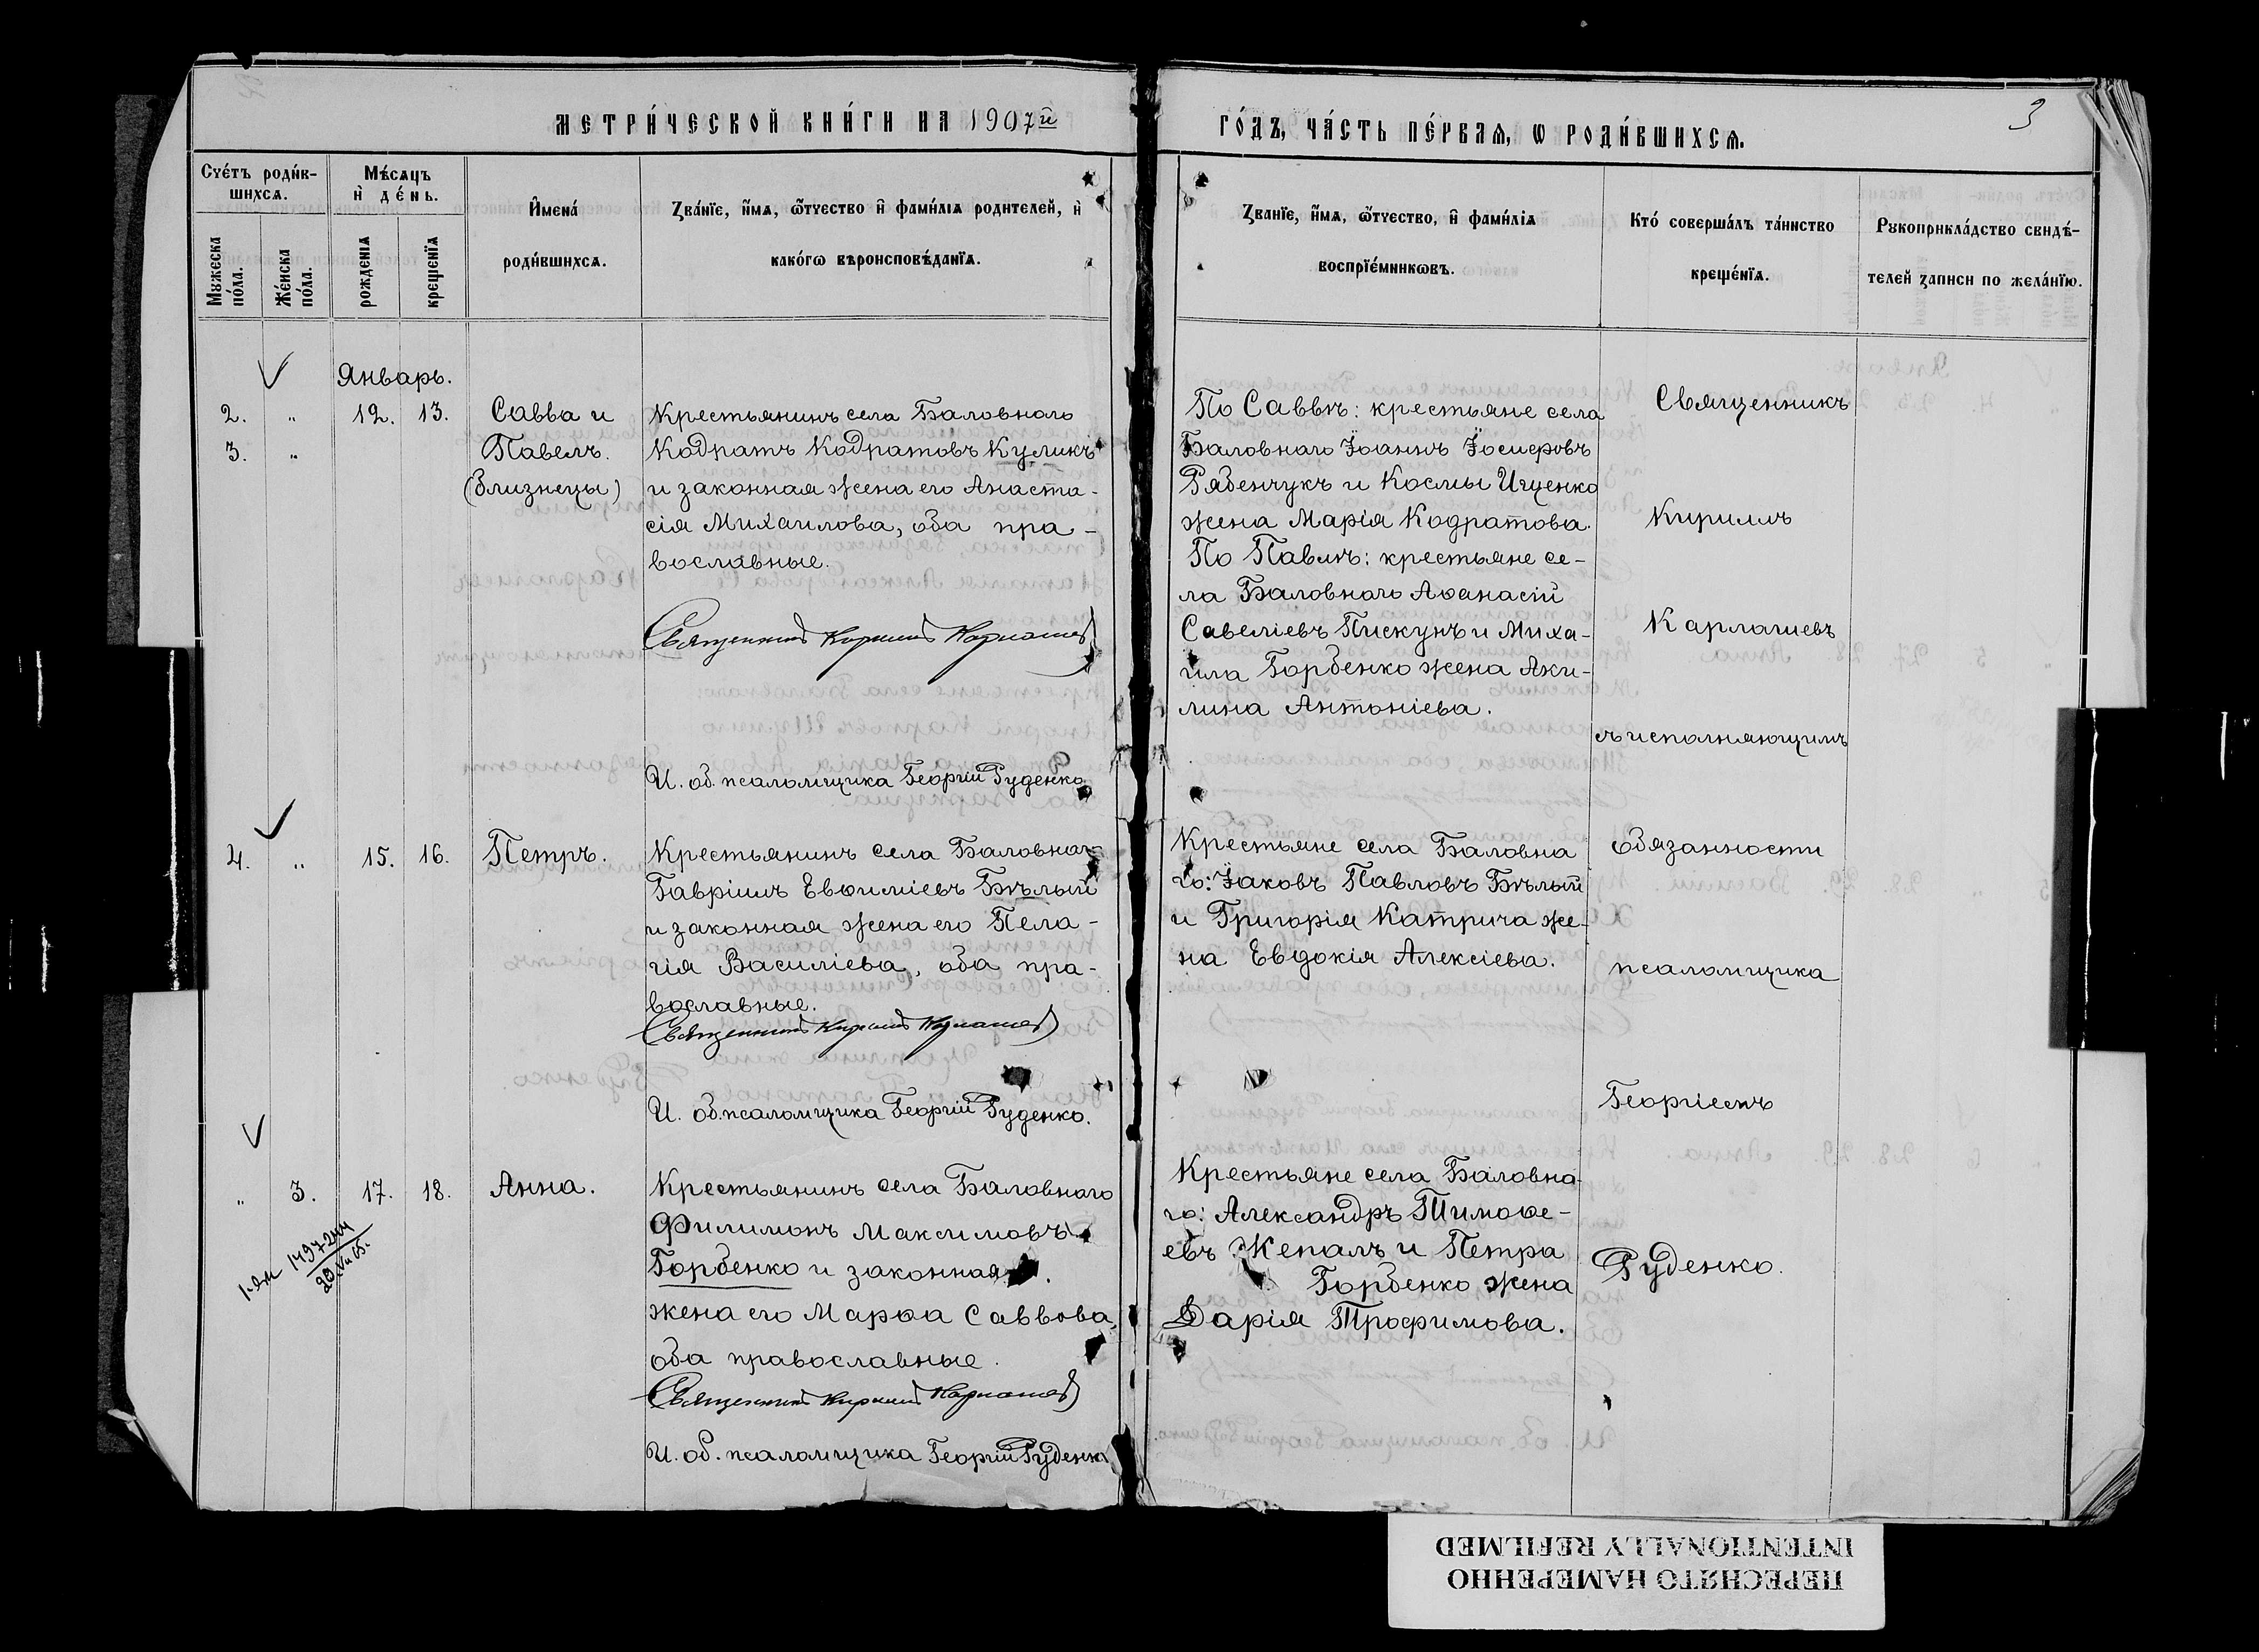 МЕТРИ́ЧЕСКОЙ КНИ́ГИ НА 1907й
ГО́ДЪ, ЧА́СТЬ ПЕ́РВАЯ, Ѡ РОДИ́ВШИХСѦ.
3
Сче́тъ роди́в-
шихсѧ.
Мѣ́сѧцъ
и де́нь.
Мꙋжеска
по́ла.
Же́нска
по́ла.
рожденїѧ
крещенїѧ
Имена́
роди́вшихсѧ.
Зва́нїе, и́мѧ, ѻ҆́тчество и фами́лїѧ родителей, и
како́гѡ вѣроисповѣ́данїѧ.
Зва́нїе, и́мѧ, ѻ҆́тчество, и фами́лїѧ
воспрїе́мникѡвъ.
Кто́ соверша́лъ та́инство
креще́нїѧ.
Рꙋкоприкла́дство свидѣ́-
телей записи по жела́нїю.
Январь.
2. „ 12. 13. Савва и
3. „ Павелъ.
(близнецы)
Крестьянинъ села Баловнаго
Кодратъ Кодратовъ Куликъ
и законная жена его Анаста-
сія Михаилова, оба пра-
вославные.
Священникъ Кирилъ Карлашев
И. об. псаломщика Георгій Руденко
По Саввѣ: крестьяне села
Баловнаго Іоаннъ Іосифовъ
Рябенчукъ и Космы Ищенко
жена Марія Кодратова.
По Павлѣ: крестьяне се-
ла Баловнаго Аѳанасій
Савеліевъ Пискунъ и Миха-
ила Горбенко жена Аки-
лина Антоніева.
Священникъ
Кириллъ
Карлашевъ
съ исполняющимъ
обязанности
псаломщика
Георгіемъ
Руденко.
4. „ 15. 16. Петръ.
Крестьянинъ села Баловнаго
Гавріилъ Евѳиміевъ Бѣлый
и законная жена его Пела-
гія Василіева, оба пра-
вославные.
Священникъ Кирилъ Карлашев
И. об. псаломщика Георгій Руденко.
Крестьяне села Баловна
го: Іаковъ Павловъ Бѣлый
и Григорія Катрича же-
на Евдокія Алексіева.
„ 3. 17. 18. Анна.
Крестьянинъ села Баловнаго
Филимонъ Максимовъ
Горбенко и законная
жена его Марѳа Саввова,
оба православные.
Священникъ Кирилъ Карлашев
И. об. псаломщика Георгій Руденко
Крестьяне села Баловна-
го: Александръ Тимоѳе-
евъ Жепалъ и Петра
Горбенко жена
Дарія Трофимова.
ПЕРЕСНЯТО НАМЕРЕННО
INTENTIONALLY REFILMED